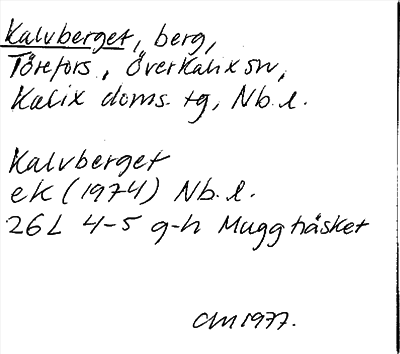 Kalvberget, berg,
Törefors, Överkalix sn,
Kalix doms. tg, Nb. l.
Kalvberget
ek (1974) Nb. l.
26L 4-5 g-h Muggträsket
CM 1977.